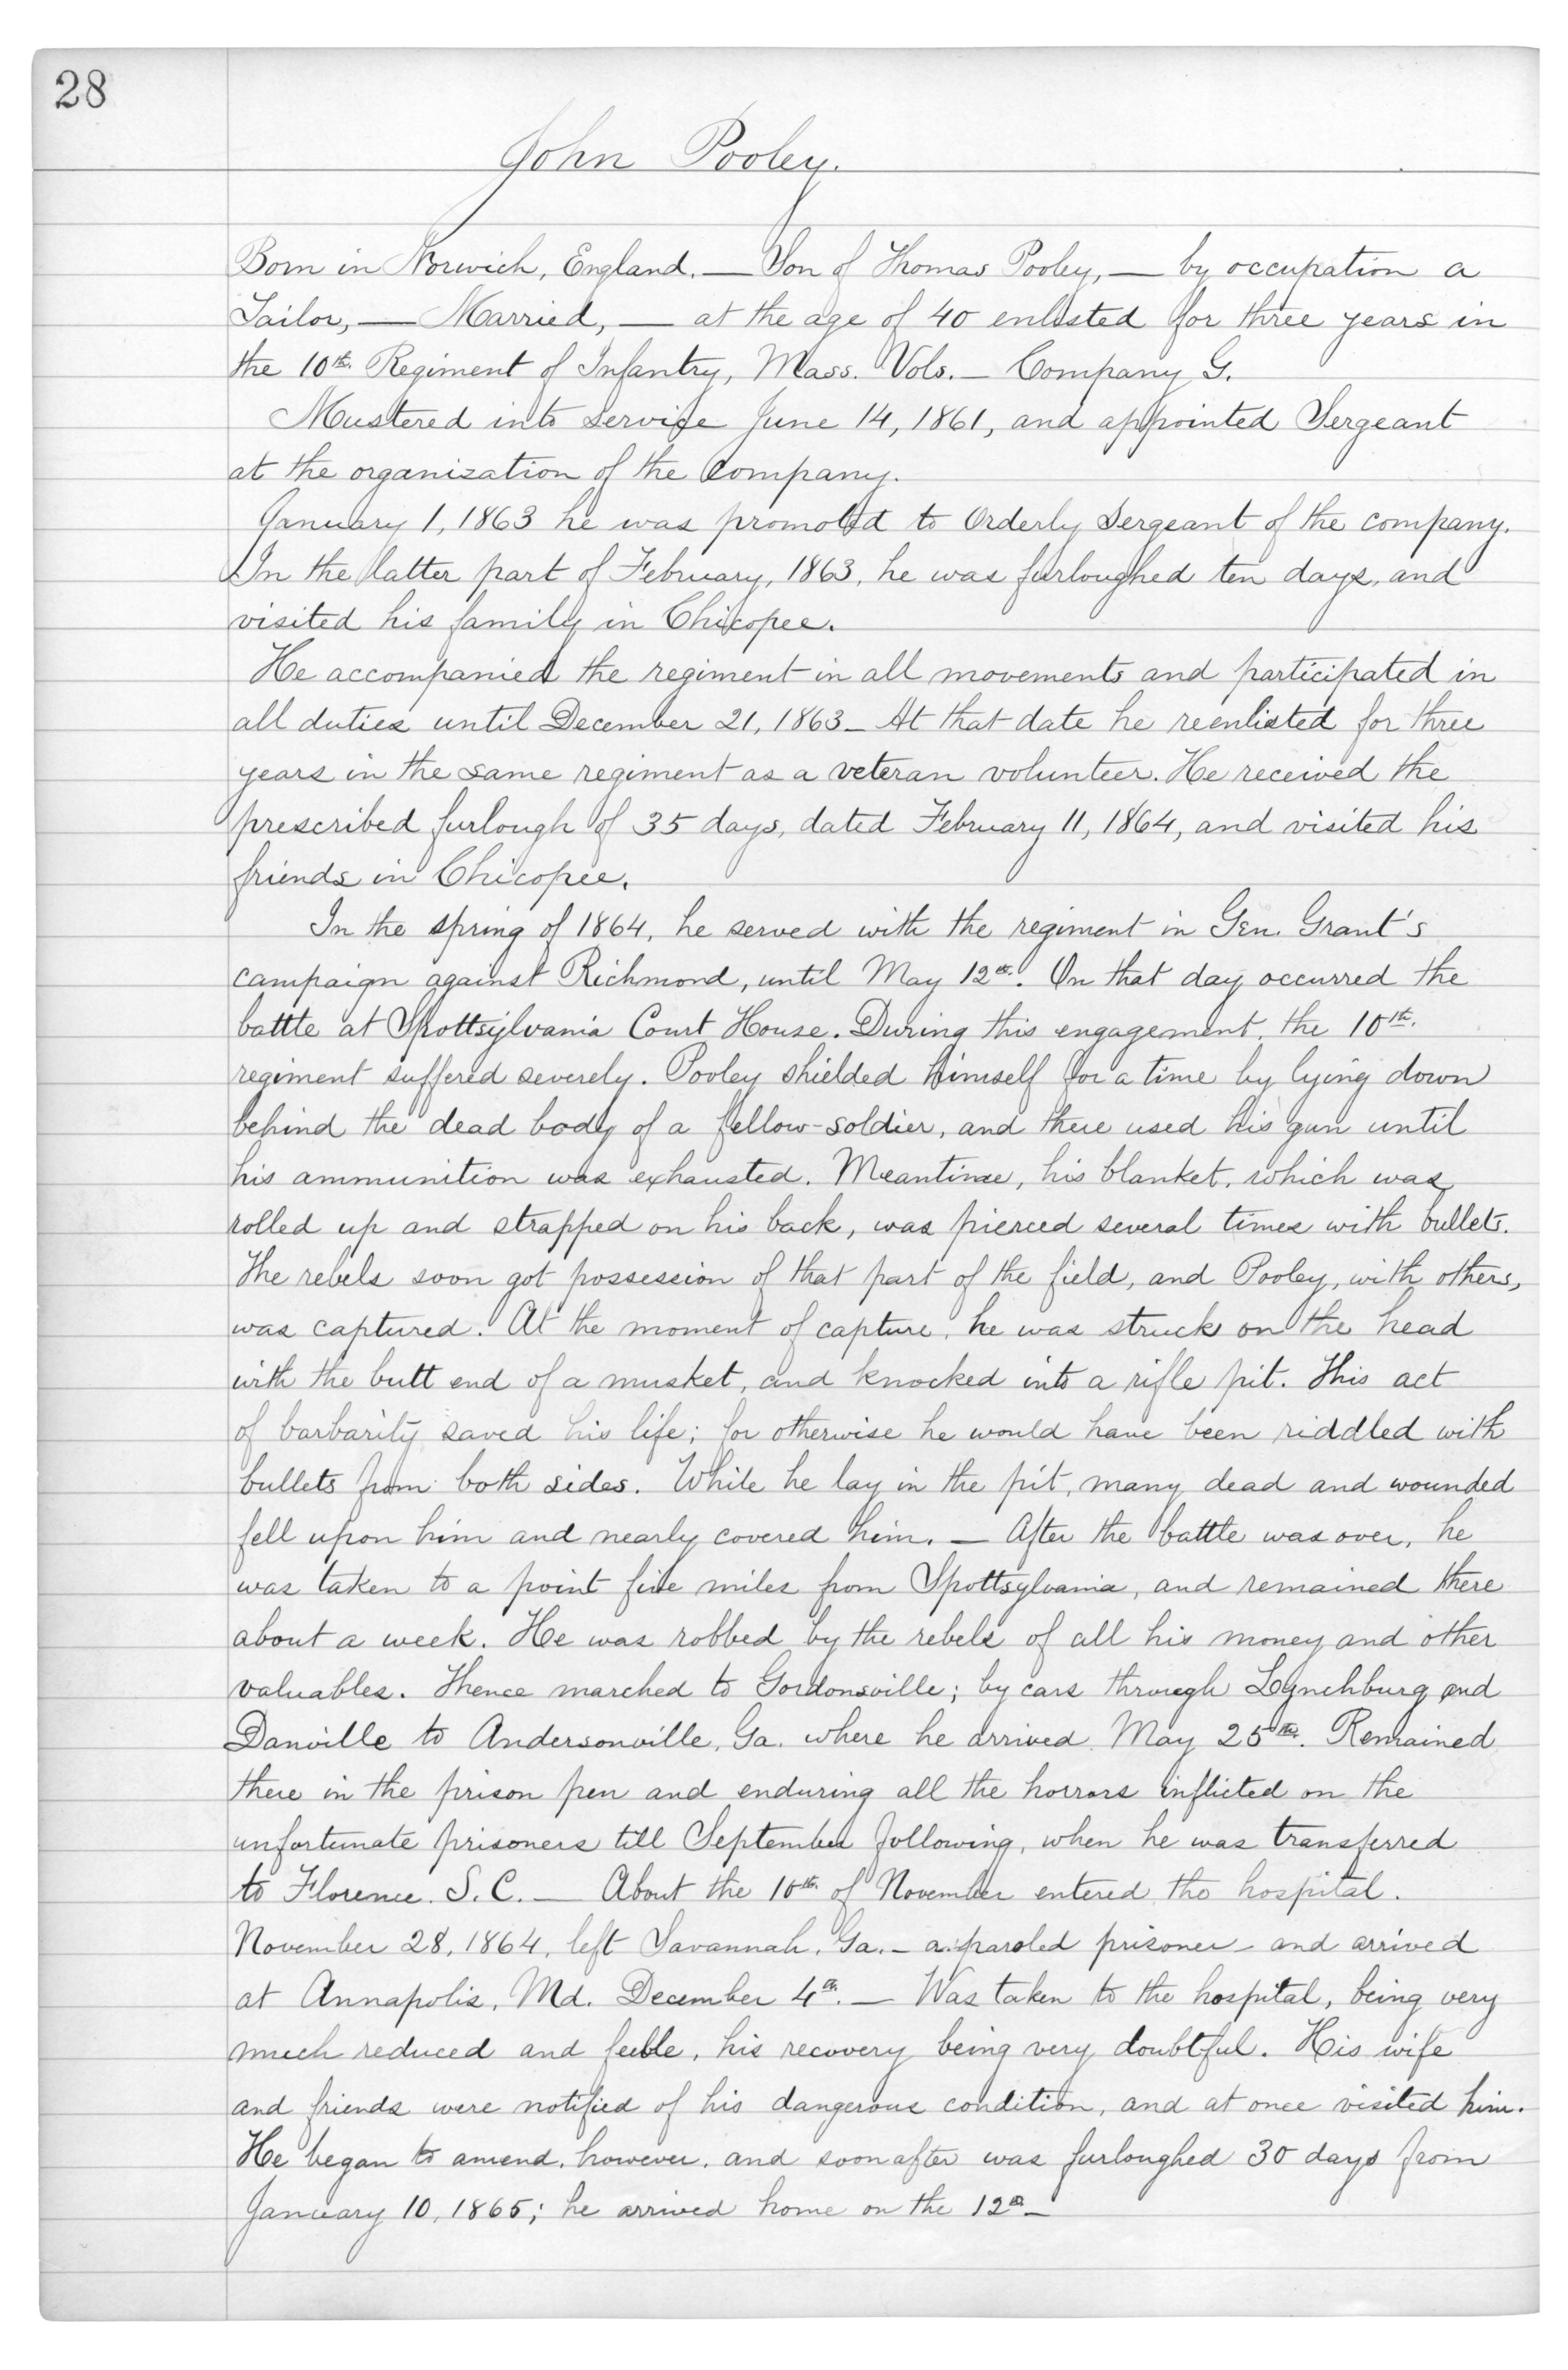 28
John Pooley.
Born in Norwich, England. — Son of Thomas Pooley, — by occupation a
Tailor, — Married, — at the age of 40 enlisted for three years in
the 10th. Regiment of Infantry, Mass. Vols. — Company G.
Mustered into service June 14, 1861, and appointed Sergeant
at the organization of the company.
January 1, 1863 he was promoted to Orderly Sergeant of the company.
In the latter part of February, 1863, he was furloughed ten days, and
visited his family in Chicopee.
He accompanied the regiment in all movements and participated in
all duties until December 21, 1863 — At that date he reenlisted for three
years in the same regiment as a veteran volunteer. He received the
prescribed furlough of 35 days, dated February 11, 1864, and visited his
friends in Chicopee.
In the spring of 1864, he served with the regiment in Gen. Grant's
campaign against Richmond, until May 12th. On that day occurred the
battle at Spottsylvania Court House. During this engagement, the 10th.
regiment suffered severely. Pooley shielded himself for a time by lying down
behind the dead body of a fellow-soldier, and there used his gun until
his ammunition was exhausted. Meantime, his blanket, which was
rolled up and strapped on his back, was pierced several times with bullets.
The rebels soon got possession of that part of the field, and Pooley, with others,
was captured. At the moment of capture, he was struck on the head
with the butt end of a musket, and knocked into a rifle pit. This act
of barbarity saved his life; for otherwise he would have been riddled with
bullets from both sides. While he lay in the pit, many dead and wounded
fell upon him and nearly covered him. — After the battle was over, he
was taken to a point five miles from Spottsylvania, and remained there
about a week. He was robbed by the rebels of all his money and other
valuables. Thence marched to Gordonsville; by cars through Lynchburg and
Danville to Andersonville, Ga. where he arrived May 25th. Remained
there in the prison pen and enduring all the horrors inflicted on the
unfortunate prisoners till September following, when he was transferred
to Florence. S. C. — About the 10th. of November entered the hospital.
November 28, 1864, left Savannah, Ga. — a paroled prisoner — and arrived
at Annapolis, Md. December 4th. — Was taken to the hospital, being very
much reduced and feeble, his recovery being very doubtful. His wife
and friends were notified of his dangerous condition, and at once visited him.
He began to amend, however, and soon after was furloughed 30 days from
January 10, 1865; he arrived home on the 12th —